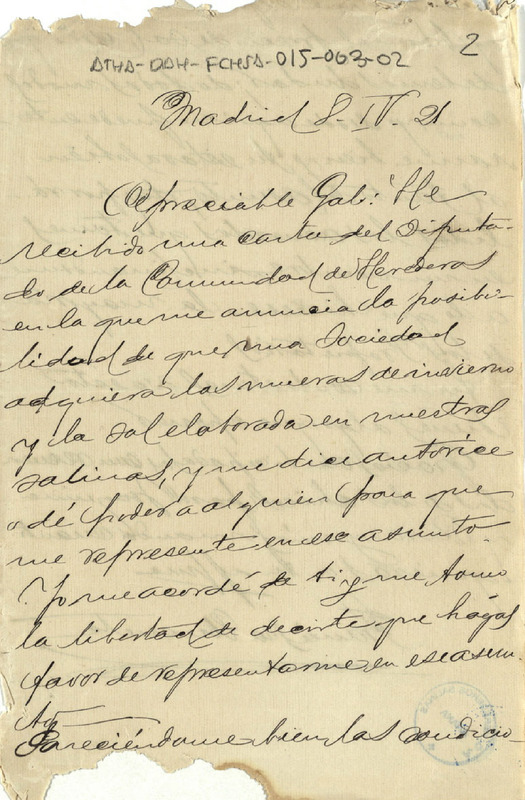 2
ATHA-DAH-FCHSA-015-063-02
Madrid 8. IV. 21
Apreciable Gabi: He
recibido una carta del Diputa-
do de la Comunidad de Herederos
en la que me anuncia la posibi-
lidad de que una Sociedad
adquiera las mueras de invierno
y la sal elaborada en nuestras
salinas, y me dice autorice
o dé poder a alguien para que
me represente en ese asunto.
Yo me acordé de ti y me tomo
la libertad de decirte que hagas
favor de representarme en ese asun-
to.
Pareciéndome bien las condicio-